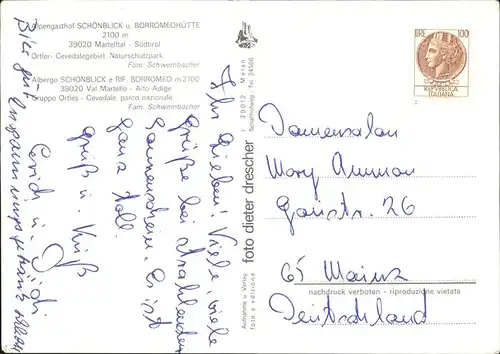 Alpengasthof SCHÖNBLICK u. BORROMEOHÜTTE
2100 m
39020 Martelltal - Südtirol
Ortler- Cevedalegebiet. Naturschutzpark
Fam. Schwembacher
Albergo SCHÖNBLICK e RIF. BORROMEO m 2100
39020 Val Martello - Alto Adige
Gruppo Ortles - Cevedale, parco nazionale
Fam. Schwembacher
Ihr Lieben! Viele, viele
Grüße bei strahlendem
Sonnenschein. Es ist
ganz toll.
Gruß u. Kuß
Bitte gut
I 39012 Meran
Tel. 34566
foto dieter drescher
Aufnahme u. Verlag
foto e edizione
LIRE 100
REPVBBLICA
ITALIANA
Damensalon
Mary Ammon
Gaustr. 26
65 Mainz
nachdruck verboten - riproduzione vietata
Deutschland